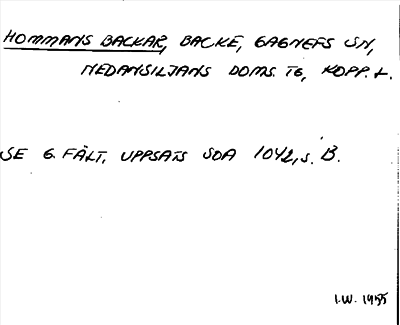 HOMMANS BACKAR, BACKE, GAGNEFS SN,
NEDANSILJANS DOMS. TG, KOPP. L.
SE G. FÄLT, UPPSATS SOA 1042, S. B.
I.W. 1955